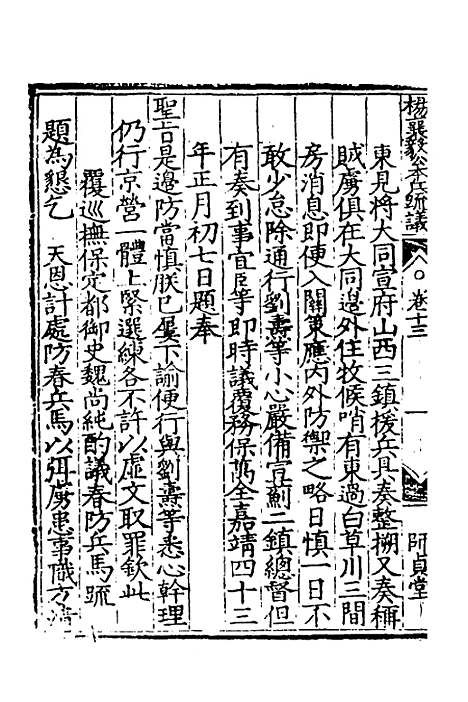 楊襄毅公本兵疏議 卷十三 一 師貞堂
東見將大同宣府山西三鎮援兵具奏整搠又奏稱
賊虜俱在大同邊外住牧候哨有東過白草川三間
房消息即便入關策應內外防禦之略日慎一日不
敢少怠除通行劉燾等小心嚴備宣薊二鎮總督但
有奏到事宜臣等即時議覆務保萬全嘉靖四十三
年正月初七日題奉
聖旨是邊防當慎朕已屢下諭便行與劉燾等悉心幹理
仍行京營一體上緊選練各不許以虛文取罪欽此
覆巡撫保定都御史魏尚純酌議春防兵馬疏
題為懇乞 天恩計處防春兵馬以弭虜患事職方清